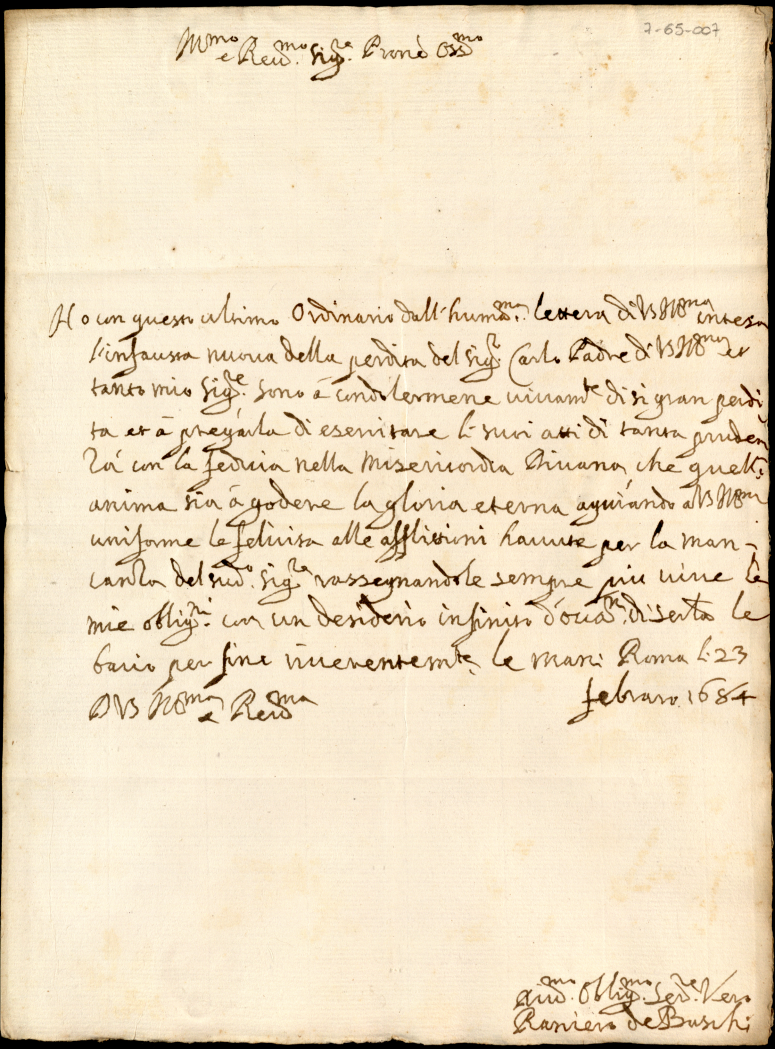 7-65-007
Ill.mo e Reu.mo Sig.re Prone Oss.mo
Ho con questo ultimo Ordinario dall'human.ma lettera di VS Ill.ma intesa
l'infausta nuoua della perdita del Sig.r Carlo Padre di VS Ill.ma et
tanto mio Sig.re sono à condolermene viuam.te di si gran perdi
ta et à pregarla di esercitare li suoi atti di tanta pruden
za con la fiducia nella Misericordia Diuana, che quell'
anima sia à godere la gloria eterna aguràndo a VS Ill.ma
uniforme le felicita alle afflitioni hauute per la man-
canza del sud.o Sig.re rassegnandole sempre piu viue le
mie oblig.ni con un desiderio infinito d'occa.ni di seruirla le
bacio per fine riuerentem.te le mani Roma li 23
febraro 1684
D VS Ill.ma e Reu.ma
Diu.mo Oblig.mo Ser.re Vero
Raniero de Buschi